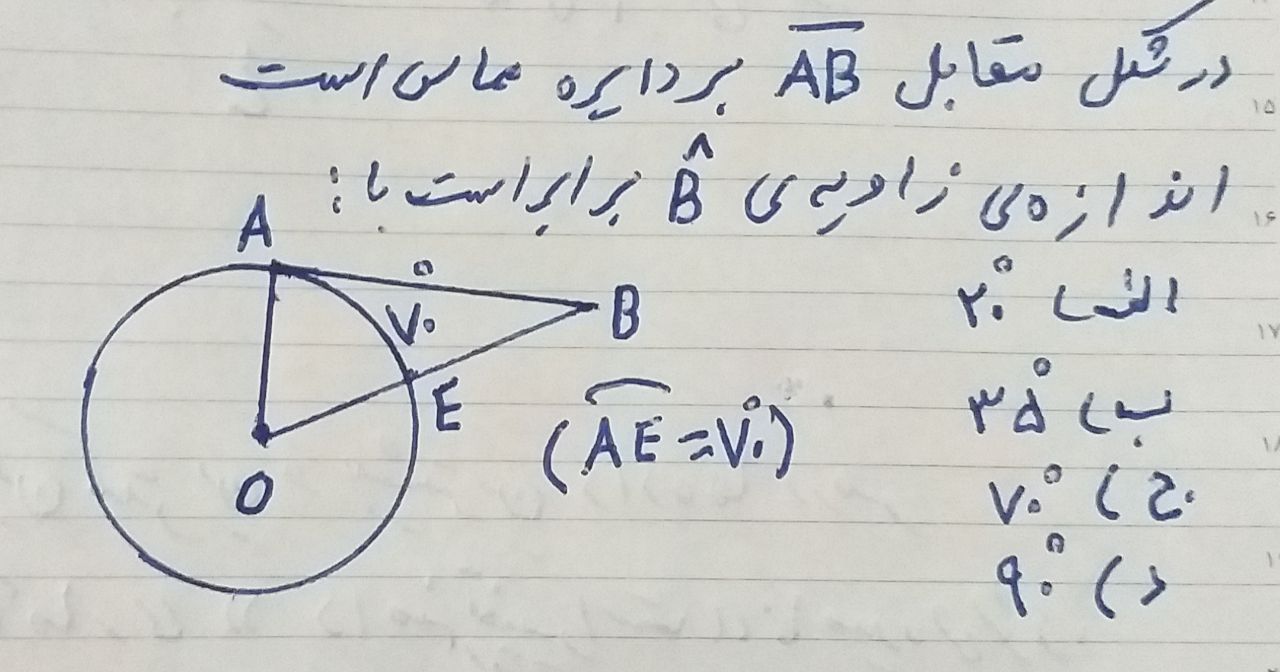 در شکل مقابل AB بر دایره مماس است
اندازه‌ی زاویه‌ی B̂ برابر است با:
الف) ۲۰°
ب) ۳۵°
ج) ۷۰°
د) ۹۰°
A
۷۰°
B
E
(AE = ۷۰°)
O
۱۵
۱۶
۱۷
۱۸